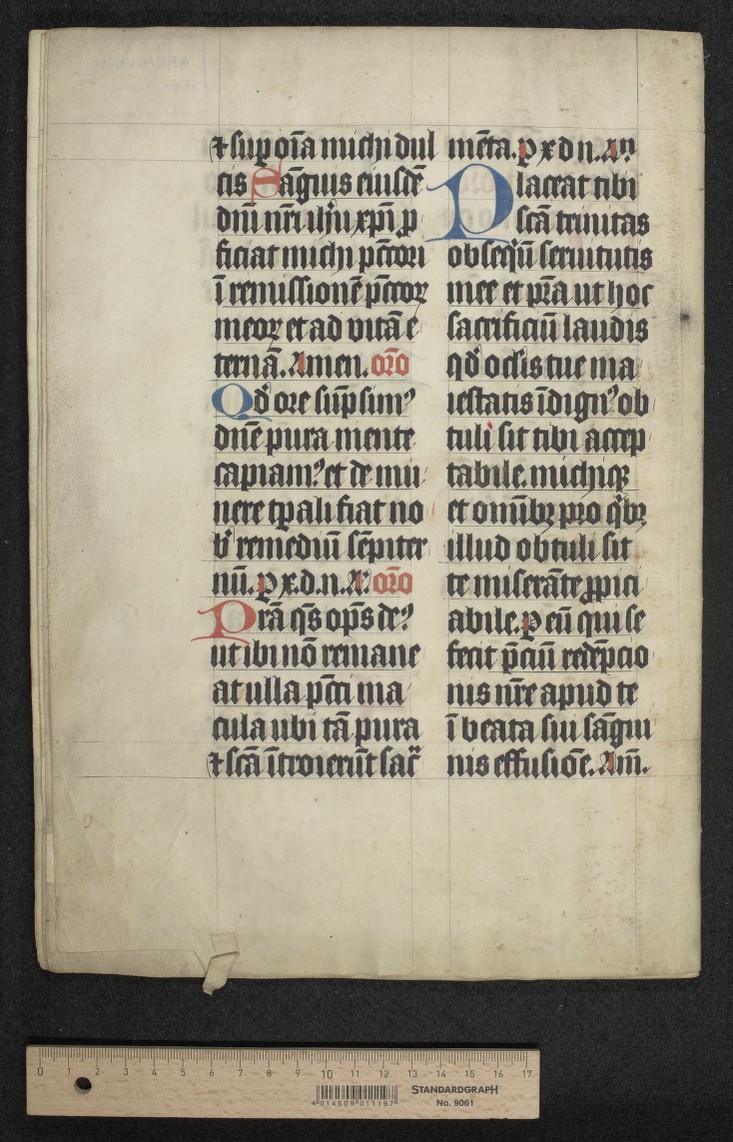 ⁊ sup̱ oīa michi dul
cis Sāguis eiusdē
dn̄i nr̄i ih̄u xp̄i ꝓ
ficiat michi pc̄cori
ī remissionē pc̄coꝝ
meoꝝ et ad vitā e
ternā. Amen. or̄o
Qd̓ ore sūpsim⁹
dn̄e pura mente
capiam⁹ et de mu
nere tp̄ali fiat no
b̓ remediū sēpiter
nū. ꝑ x.d.n. A: or̄o
Prā qs̄ op̄s de⁹
ut ibi nō remane
at ulla pc̄ci ma
cula ubi tā pura
⁊ scā ītroierūt sac̄
mēta. ꝑ x d n. A
Placeat tibi
scā trinitas
obseqͥū seruitutis
mee et pr̄a ut hoc
sacrificiū laudis
qd̓ oclis tue ma
iestatis īdign⁹ ob
tuli sit tibi accep
tabile. michiqꝫ
et omībꝫ pro qͥbꝫ
illud obtuli sit
te miserāte ꝓpici
abile. ꝑ eū qui se
fecit p̄ciū redēpcio
nis nr̄e apud te
ī beata sui sāgui
nis effusiōe. Am̄.
0 1 2 3 4 5 6 7 8 9 10 11 12 13 14 15 16 17
4 014509 011197
STANDARDGRAPH
No. 9061